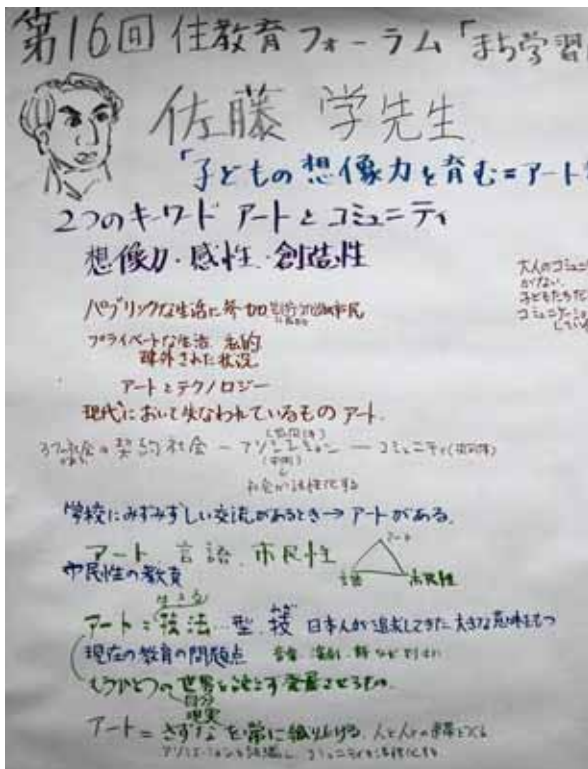 第16回 住教育フォーラム「まち学習
佐藤 学先生
「子どもの想像力を育む=アート
2つのキーワード アートとコミュニティ
想像力・感性・創造性
大人のコミュニ
がない
子どもたちだ
コミュニケーション
してい
パブリックな生活に参加 市民
プライベートな生活 私的
疎外された状況
アートとテクノロジー
現代において失なわれているもの アート.
契約社会 ー アソシエーション ー コミュニティ(共同体)
社会が活性化する
学校にみずみずしい交流があるとき→アートがある.
アート 言語 市民性
アート
言語 市民性
市民性の教育
生きる
アート=技法 型 技 日本人が追求してきた大きな意味をもつ
現在の教育の問題点
もうひとつの世界を 発展させるもの.
自分
現実
アート=きずなを常に織り上げる. 人と人との絆をつくる
アソシエーションを コミュニティを活性化する